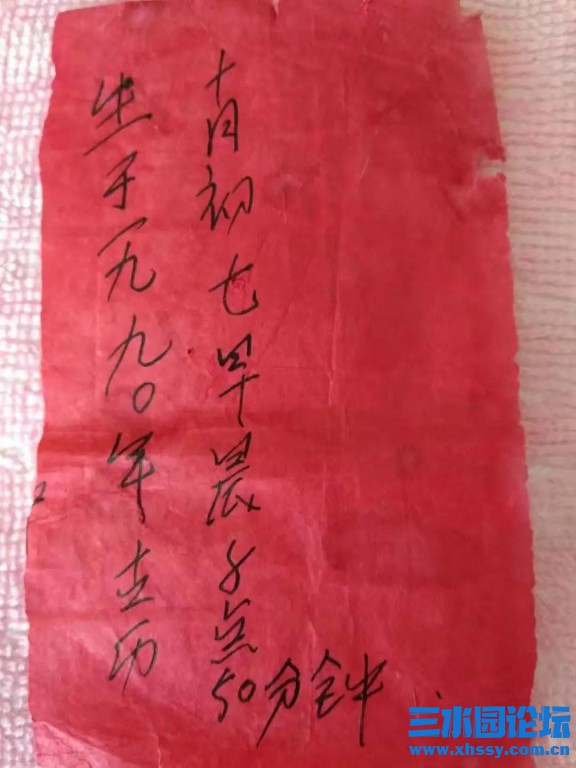 生于一九九〇年古历
十月初七早晨8点
50分钟
三水园论坛
www.xhssy.com.cn